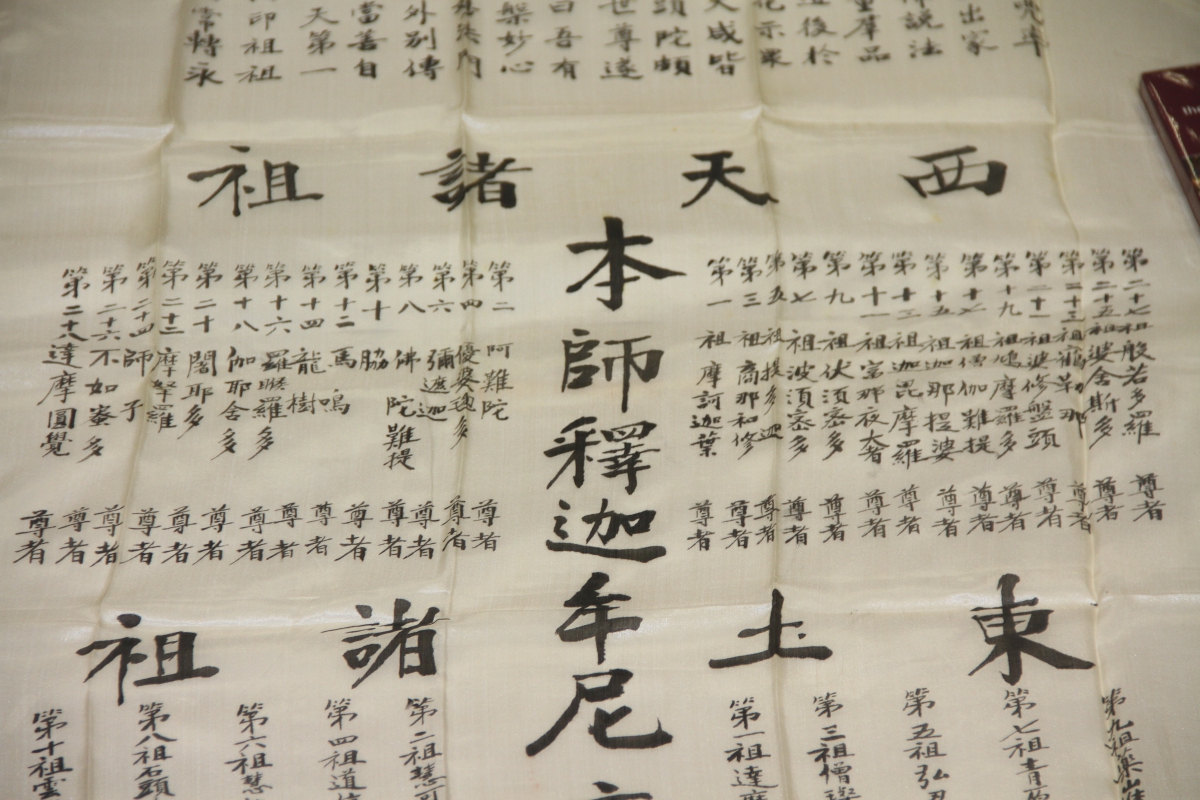 兜率
出家
說法
羣品
後於
示眾
大成皆
頭陀
世尊遂
曰吾有
槃妙心
門
外別傳
當善自
天第一
印祖祖
常
西天諸祖
第二十七祖般若多羅尊者
第二十五祖婆舍斯多尊者
第二十三祖鶴勒那尊者
第二十一祖婆修盤頭尊者
第十九祖鳩摩羅多尊者
第十七祖僧伽難提尊者
第十五祖迦那提婆尊者
第十三祖迦毘摩羅尊者
第十一祖富那夜大者尊者
第九祖伏須密多尊者
第七祖波須密多尊者
第五祖提多迦尊者
第三祖商那和修尊者
第一祖摩訶迦葉尊者
本師釋迦牟尼
第二阿難陀尊者
第四優婆毱多尊者
第六彌遮迦尊者
第八佛陀難提尊者
第十脇尊者
第十二馬鳴尊者
第十四龍樹尊者
第十六羅睺羅多尊者
第十八伽耶舍多尊者
第二十闍耶多尊者
第二十二摩拏羅尊者
第二十四師子尊者
第二十六不如密多尊者
第二十八達摩圓覺尊者
東土諸祖
第九祖藥山
第七祖青
第五祖弘忍
第三祖僧璨
第一祖達摩
第二祖慧可
第四祖道信
第六祖慧
第八祖石頭
第十祖雲